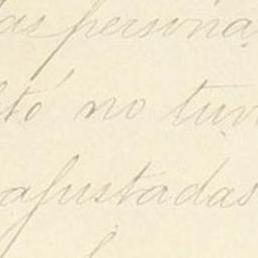 las persona
ltó no tuv
ajustadas